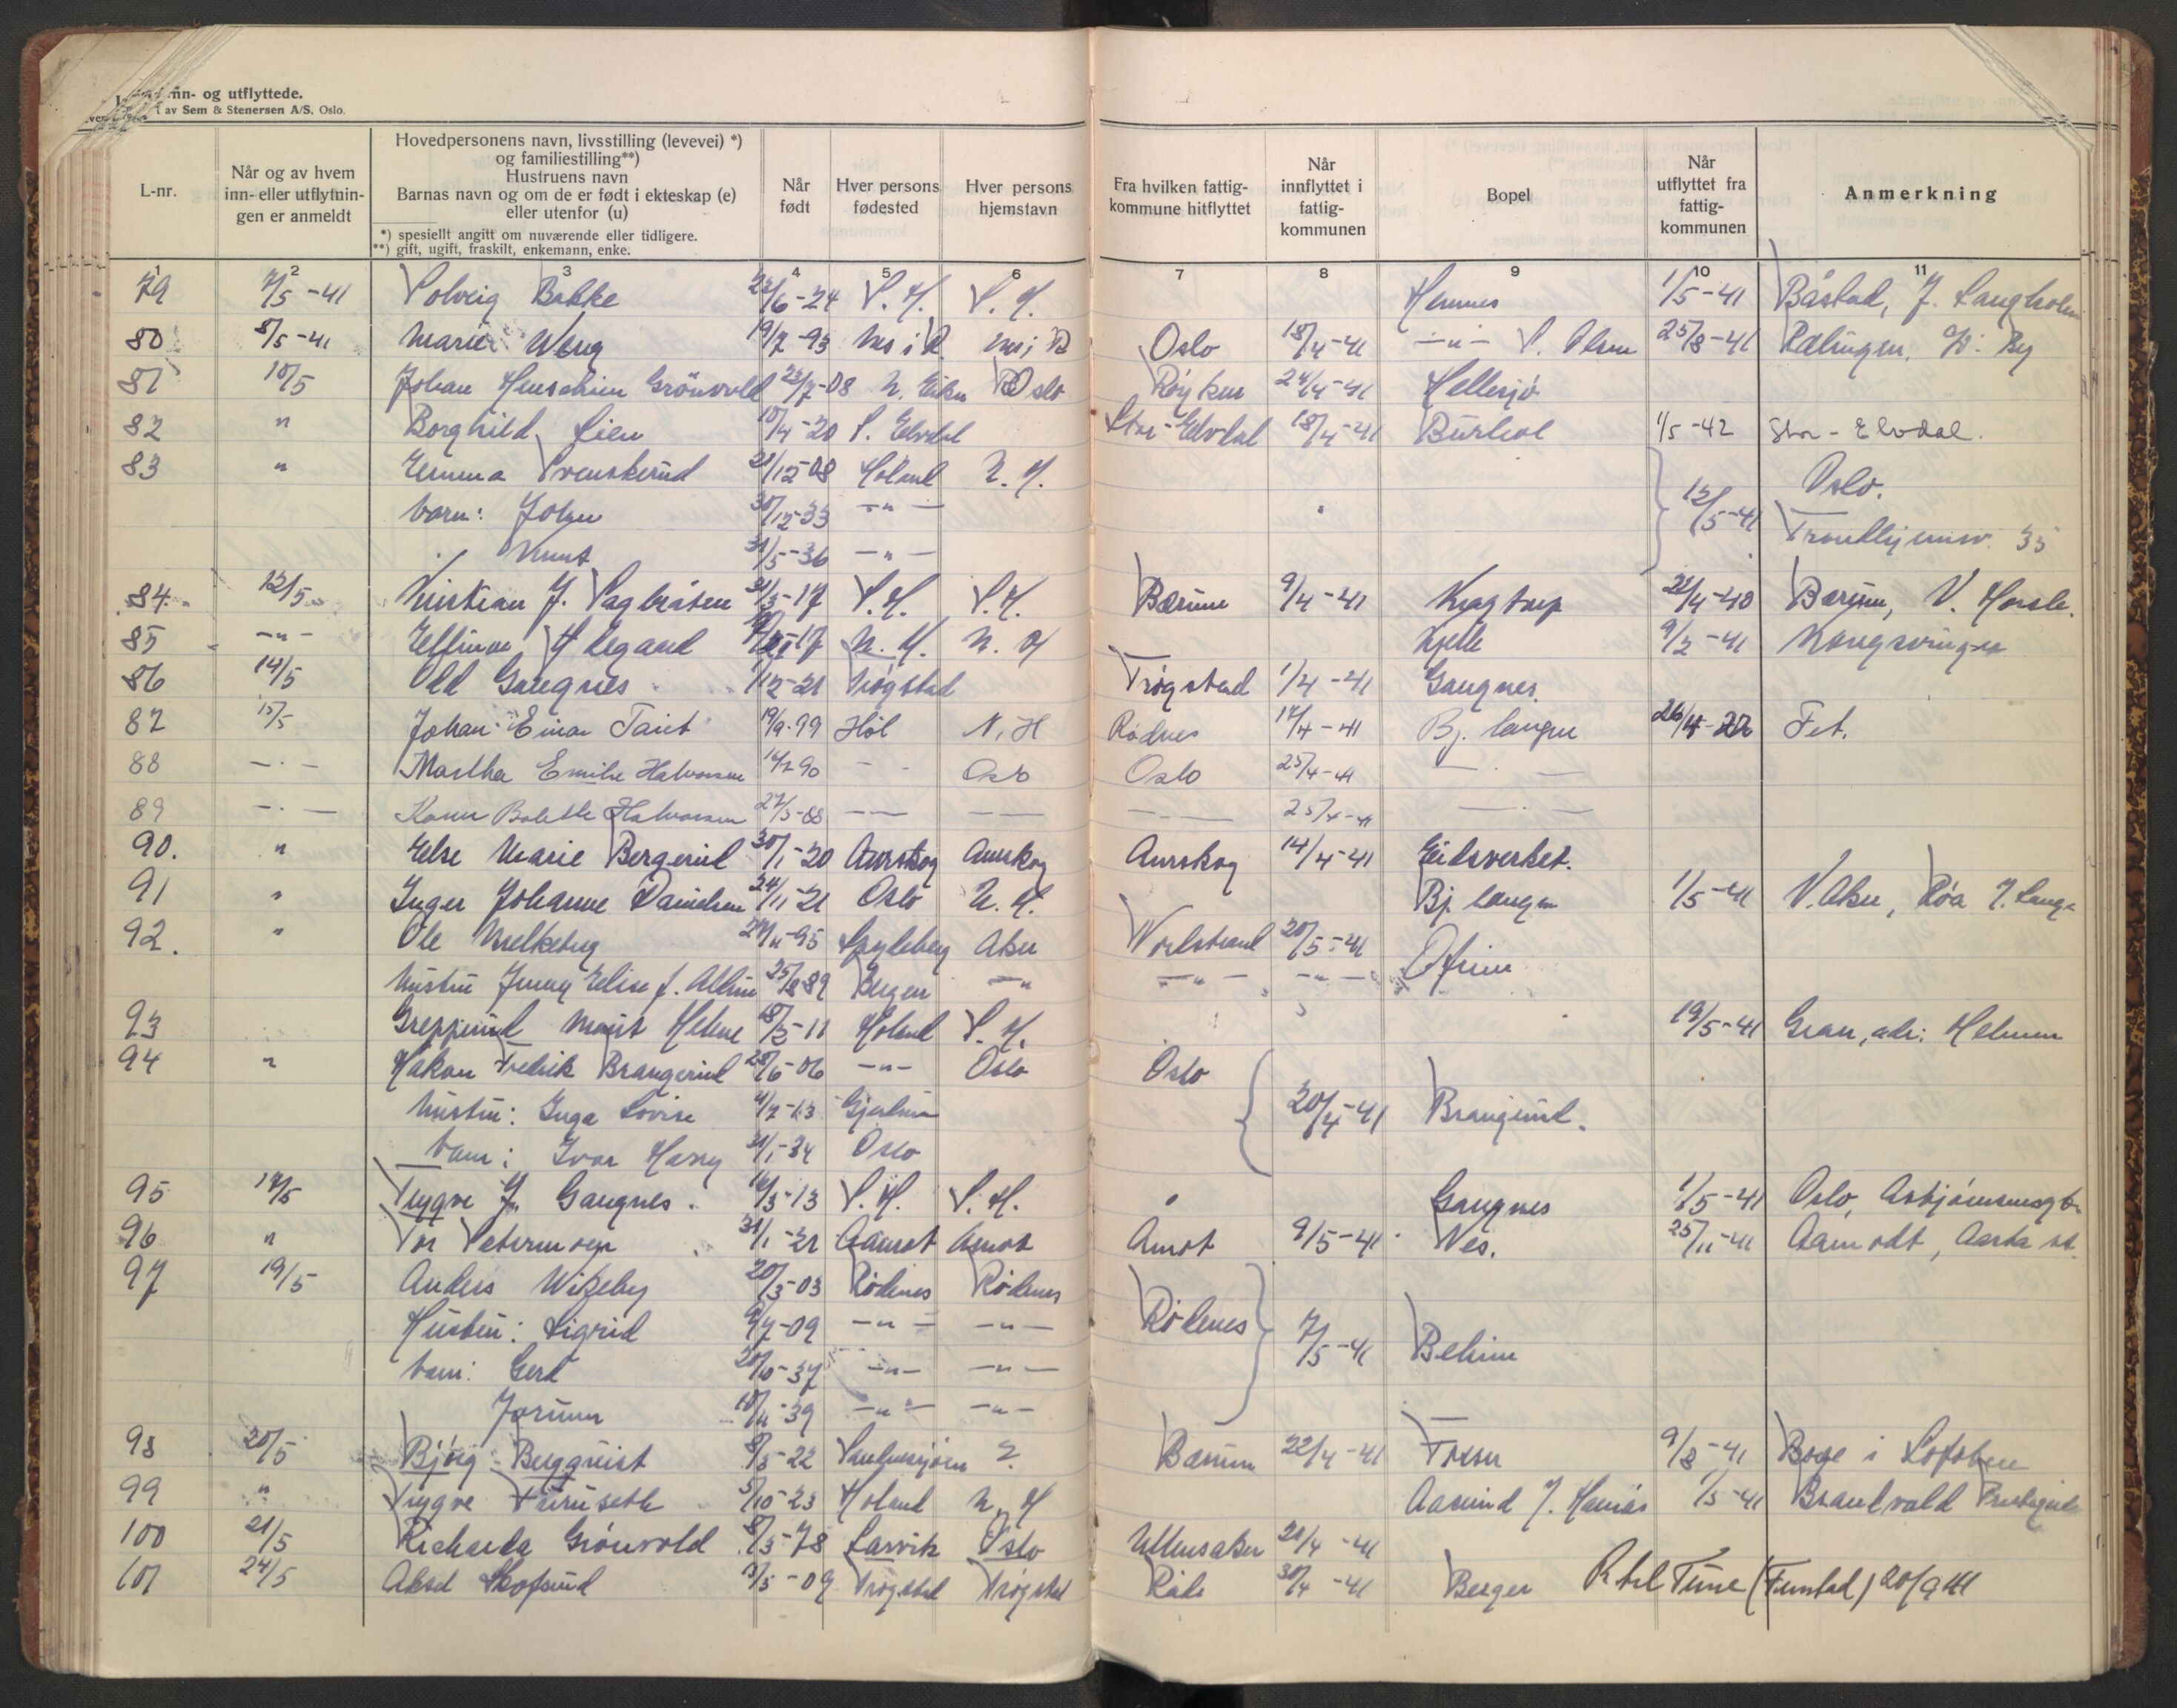 inn- og utflyttede.
av Sem & Stenersen A/S. Oslo.
L-nr.
Når og av hvem inn- eller utflytningen er anmeldt
Hovedpersonens navn, livsstilling (levevei) *) og familiestilling**)
Hustruens navn
Barnas navn og om de er født i ekteskap (e) eller utenfor (u)
*) spesiellt angitt om nuværende eller tidligere.
**) gift, ugift, fraskilt, enkemann, enke.
Når født
Hver persons fødested
Hver persons hjemstavn
Fra hvilken fattigkommune hitflyttet
Når innflyttet i fattigkommunen
Bopel
Når utflyttet fra fattigkommunen
Anmerkning
1 2 3 4 5 6 7 8 9 10 11
79 7/5-41 Solveig Bakke 23/6-24 S.H. S.H. Hemnes 1/5-41 Båstad, J. Langholm
80 8/5-41 Marie Weng 19/7-93 Oslo 18/4-41 -"- S. Olsen 25/8-41 Rælingen,
81 10/5 Johan Henschien Grönvold 23/7-08 N. Eiker Oslo Røyken 24/4-41 Hellesjø
82 " Borghild Lien 10/4-20 S. Elvdal Stor-Elvdal 18/4-41 Burhol 1/5-42 Stor-Elvdal.
83 " Emma Svenskerud 21/12-08 Høland N.H. Oslo.
barn: John 30/12-33 -"- 12/5-41 Trondhjemsv. 35
" Knut 31/5-36 -"-
84. 12/5 Kristian J. Sagbråten 31/3-17 S.H. S.H. Bærum 9/4-41 Krogtorp 21/4-40 Bærum, V.
85 -"- N.H. N.H Kjelle 9/2-41 Kongsvinger
86 14/5 Odd Gangnes 1/12-21 Trøgstad Trøgstad 1/4-41 Gangnes
87 15/5 Johan Einar 19/9-99 Høl N.H Rødnes 17/4-41 Bj. langen Fet.
88 -"- Martha Emilie Halvorsen 14/2-90 - - Oslo Oslo 25/4-41 - " -
89 -"- Karen Bolette Halvorsen 27/5-88 - - - - 25/4-41 - " -
90. " Else Marie Bergerud 30/1-20 Aurskog Aurskog Aurskog 14/4-41 Eidsverket.
91 " Inger Johanne Danielsen 24/11-21 Oslo N.H. Bj. langen 1/5-41 V. Aker, Røa J. Lange
92. " Ole Melkeberg 27/11-95 Spydeberg Aker Nordstrand 20/5-41 Ofrim
hustru Jenny Elise f. 25/8-89 Bergen -"- -"- -"-
93 Greppernd Marit Helene 18/5-11 Høland S.H. 19/5-41 Gran, adr:
94 " Håkon Fredrik Brangerud 28/6-06 -"- Oslo Oslo
hustru: Inga Lovise 4/7-13 Gjerdrum 20/4-41 Brangerud.
barn: Ivar Harry 31/1-34 Oslo
95 17/5 Trygve J. Gangnes. 16/3-13 S.H. S.H. Gangnes 1/5-41 Oslo, Asbjørnsensgt.
96 " Tor Petermoen 31/1-21 Aamot Amot Amot 9/5-41 Nes. 25/11-41 Aamodt, Aasta st.
97 19/5 Anders Wiseby 20/3-03 Rødenes Rødenes
Hustru: Sigrid 9/7-09 -"- -"- Rødenes 7/5-41 Behim
barn: Gerd 20/10-37 -"- -"-
Jorunn 10/11-39 -"- -"-
98 20/5 Bjørg Bergquist 8/5-22 ? Bærum 22/4-41 Fosser 9/8-41 Bøge i Lofoten
99 " Trygve Furuseth 5/10-23 Høland N.H 1/5-41 Brandvold
100 21/5 Richarda Grönvold 8/3-78 Larvik Oslo Ullensaker 21/4-41
101 24/5 Aksel Skofsrud 13/5-09 Trøgstad Trøgstad Råde 30/4-41 Berger R til Tune 20/9 41